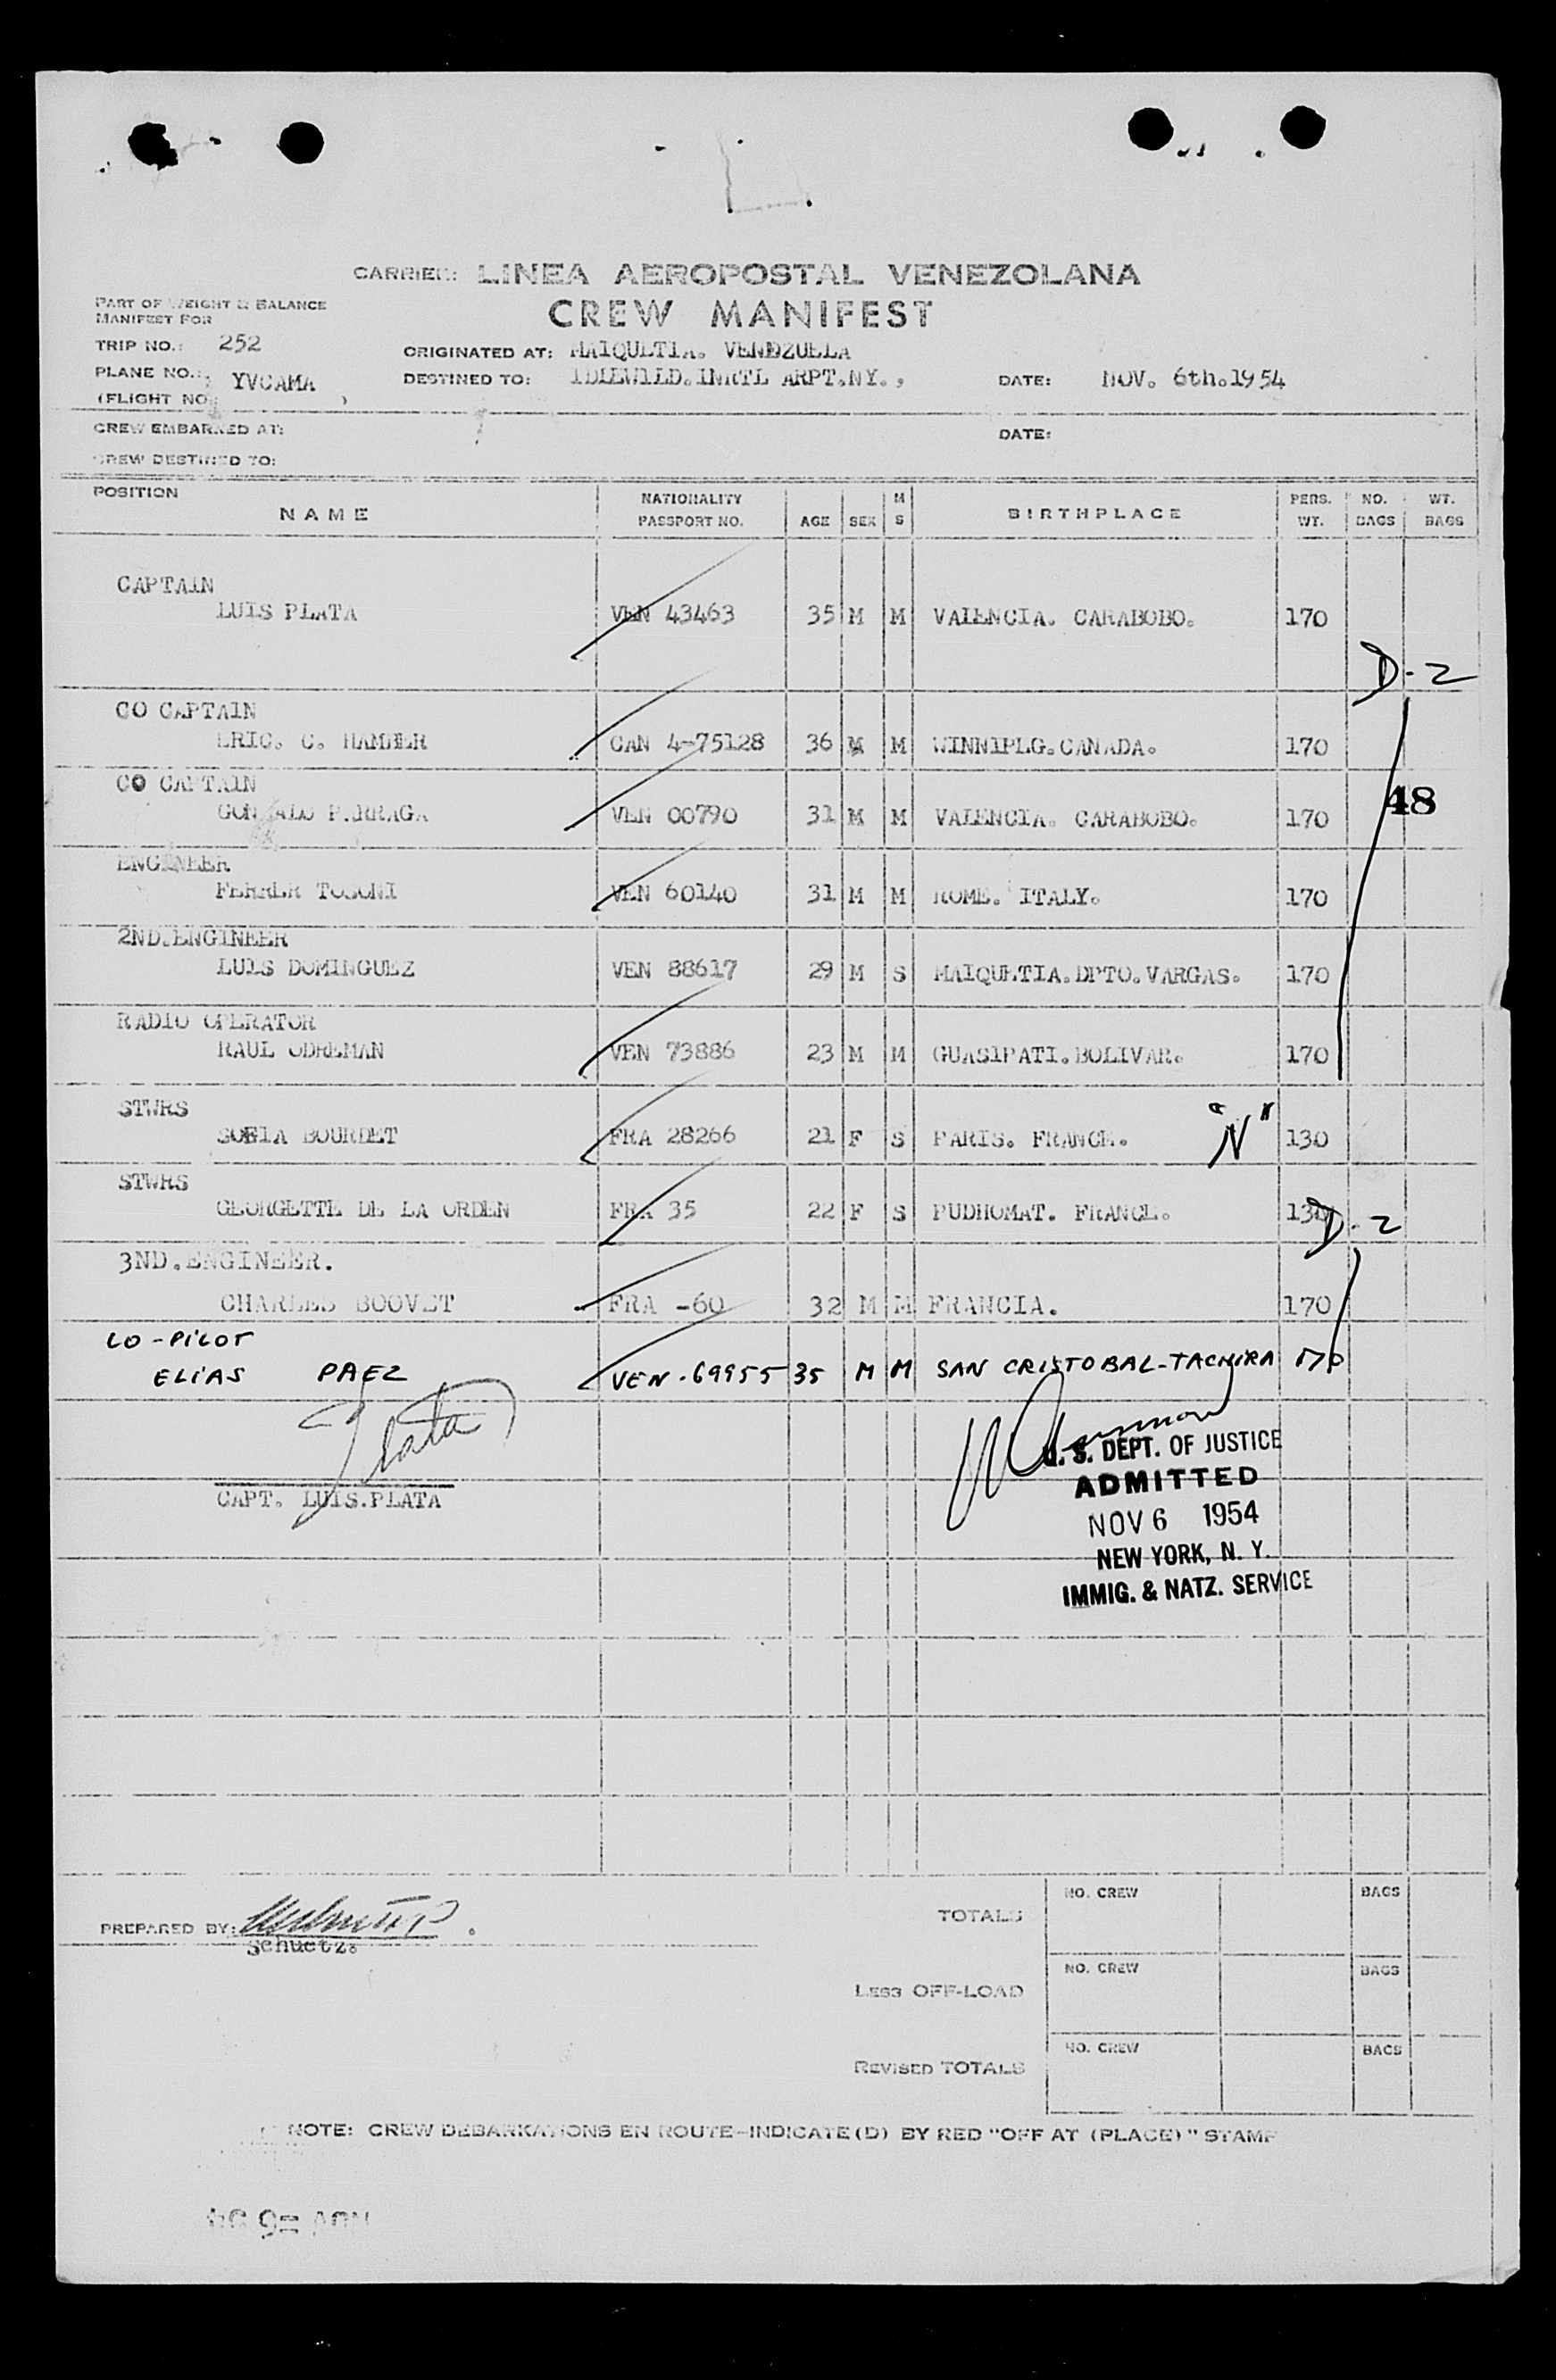 CARRIER: LINEA AEROPOSTAL VENEZOLANA
PART OF WEIGHT & BALANCE
MANIFEST FOR
CREW MANIFEST
TRIP NO.: 252
ORIGINATED AT: MAIQUETIA. VENDZUELA
PLANE NO.: YVCAMA
DESTINED TO: IDLEWILD.INRTL ARPT.NY.,
DATE: NOV. 6th.1954
(FLIGHT NO. )
CREW EMBARKED AT:
DATE:
CREW DESTINED TO:
POSITION
NAME
NATIONALITY
PASSPORT NO.
AGE
SEX
M
S
BIRTHPLACE
PERS.
WT.
NO.
BAGS
WT.
BAGS
CAPTAIN
LUIS PLATA VEN 43463 35 M M VALENCIA. CARABOBO. 170
D-2
CO CAPTAIN
ERIC. C. HAMBER CAN 4-75128 36 M M WINNIPEG.CANADA. 170
CO CAPTAIN
GONZALO PARRAGA VEN 00790 31 M M VALENCIA. CARABOBO. 170
48
ENGINEER
FERRER TOSONI VEN 60140 31 M M ROME. ITALY. 170
2ND.ENGINEER
LUIS DOMINGUEZ VEN 88617 29 M S MAIQUETIA.DPTO.VARGAS. 170
RADIO OPERATOR
RAUL ODREMAN VEN 73886 23 M M GUASIPATI.BOLIVAR. 170
STWRS
SOFIA BOURDET FRA 28266 21 F S PARIS. FRANCE. "N" 130
STWRS
GEORGETTE DE LA ORDEN FRA 35 22 F S PUDHOMAT. FRANCE. 130
D-2
3ND.ENGINEER.
CHARLES BOOVET FRA -60 32 M M FRANCIA. 170
CO-PILOT
ELIAS PAEZ VEN.69955 35 M M SAN CRISTOBAL-TACHIRA 170
Plata
CAPT. LUIS.PLATA
U. S. DEPT. OF JUSTICE
ADMITTED
NOV 6 1954
NEW YORK, N. Y.
IMMIG. & NATZ. SERVICE
NO. CREW BAGS
TOTALS
PREPARED BY:
Schuetz.
NO. CREW BAGS
LESS OFF-LOAD
NO. CREW BAGS
REVISED TOTALS
NOTE: CREW DEBARKATIONS EN ROUTE-INDICATE (D) BY RED "OFF AT (PLACE)" STAMP